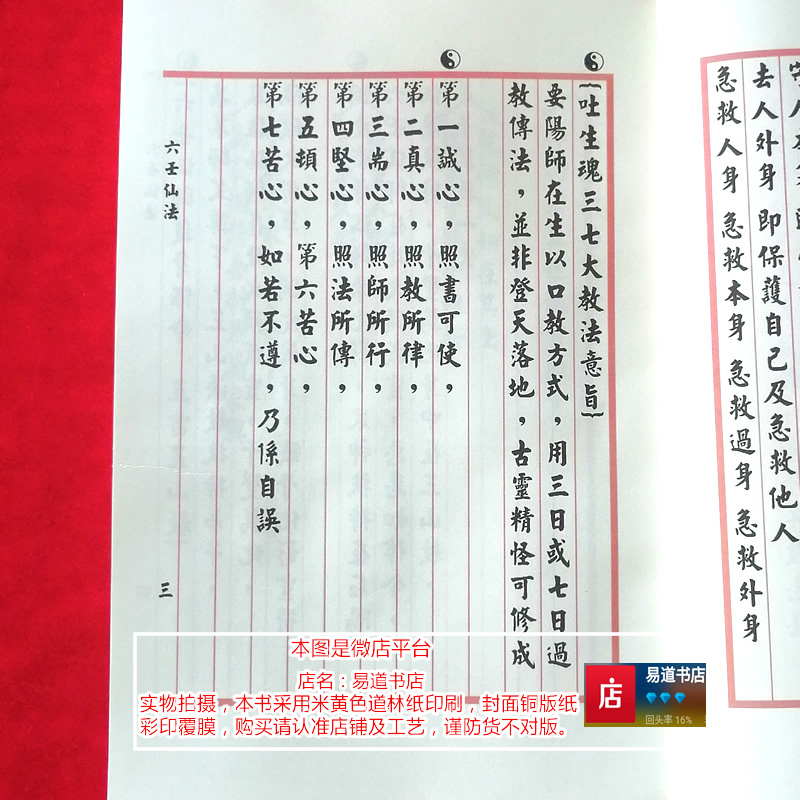 去人外身 即保護自己及急救他人
急救人身 急救本身 急救過身 急救外身
{吐生魂三七大教法意旨}
要陽師在生以口教方式，用三日或七日過
教傳法，並非登天落地，古靈精怪可修成
第一誠心，照書可使，
第二真心，照教所律，
第三耑心，照師所行，
第四堅心，照法所傳，
第五頓心，第六苦心，
第七苦心，如若不遵，乃係自誤
六壬仙法
三
本图是微店平台
店名：易道书店
实物拍摄，本书采用米黄色道林纸印刷，封面铜版纸
彩印覆膜，购买请认准店铺及工艺，谨防货不对版。
店
易道书店
回头率 16%